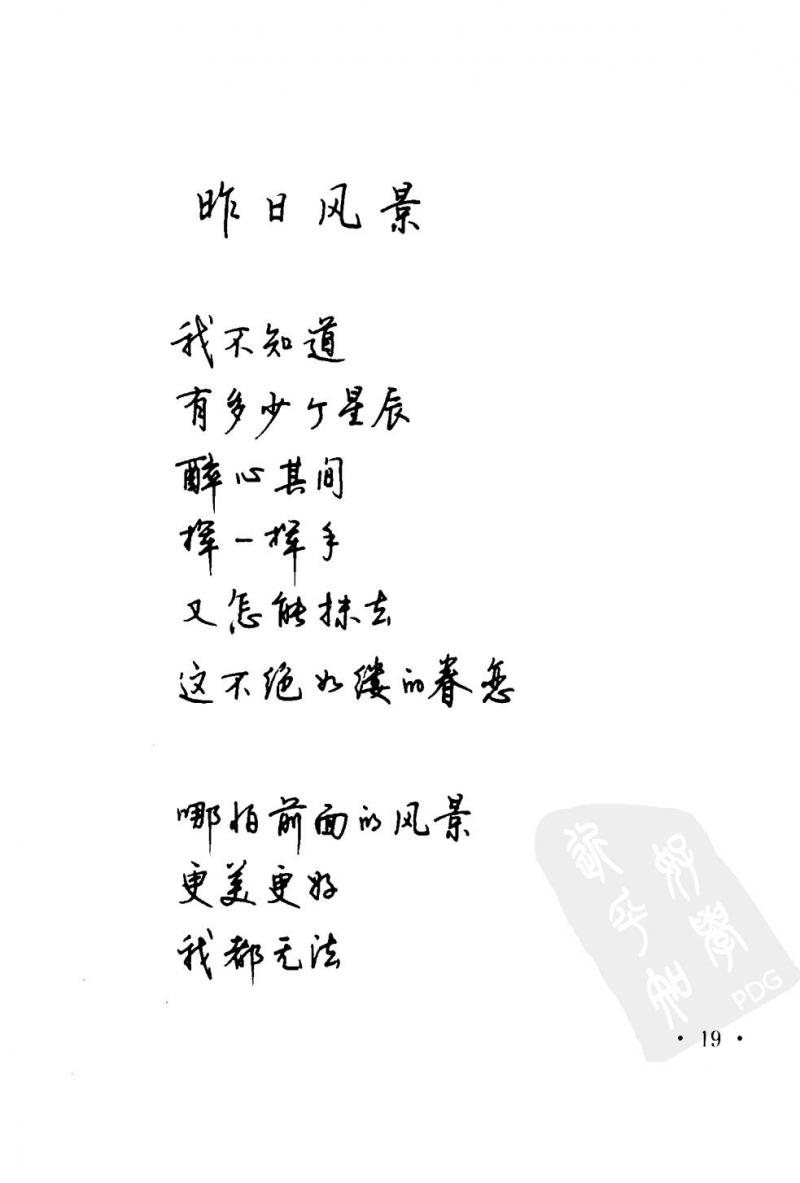 昨日风景
我不知道
有多少个星辰
醉心其间
挥一挥手
又怎能抹去
这不绝如缕的眷恋
哪怕前面的风景
更美更好
我都无法
PDG
· 19 ·